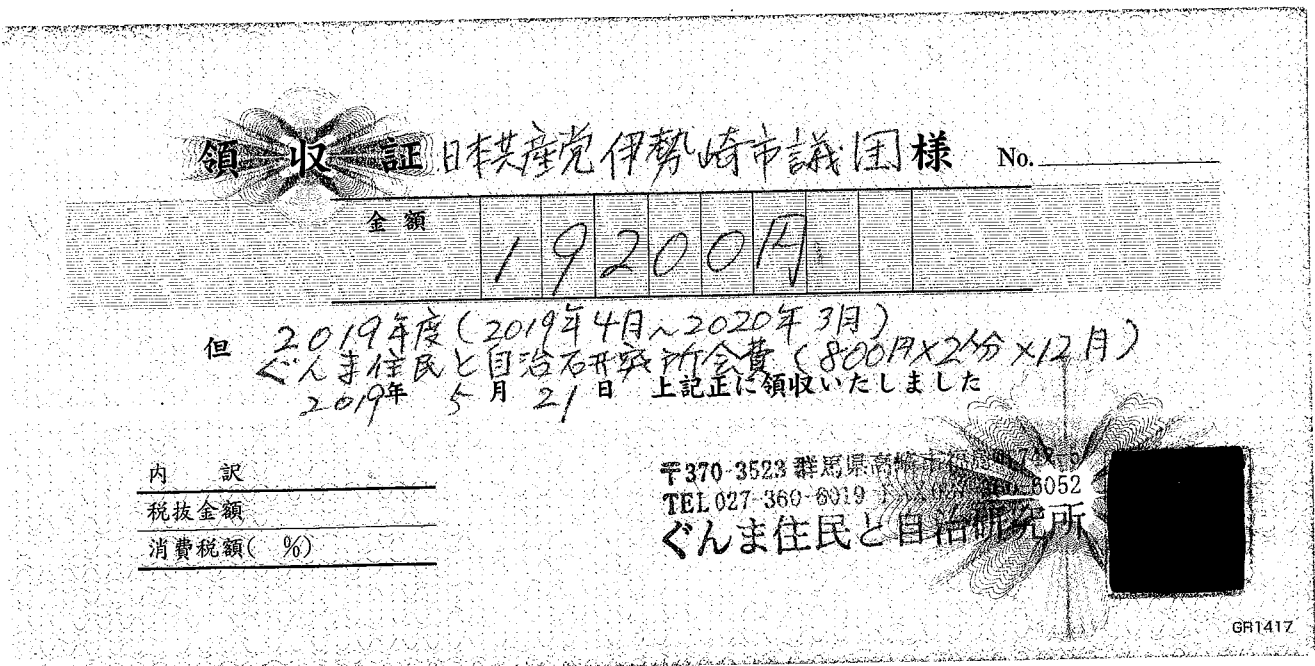 領収証 日本共産党伊勢崎市議団 様 No.
金額 19200円
但 2019年度(2019年4月~2020年3月)
ぐんま住民と自治研究所会費(800円×2人分×12月)
2019年 5月 21日 上記正に領収いたしました
内 訳
税抜金額
消費税額( %)
〒370-3523 群馬県高崎市福島町742-5
TEL 027-360-6019 FAX 027-360-6052
ぐんま住民と自治研究所
GR1417